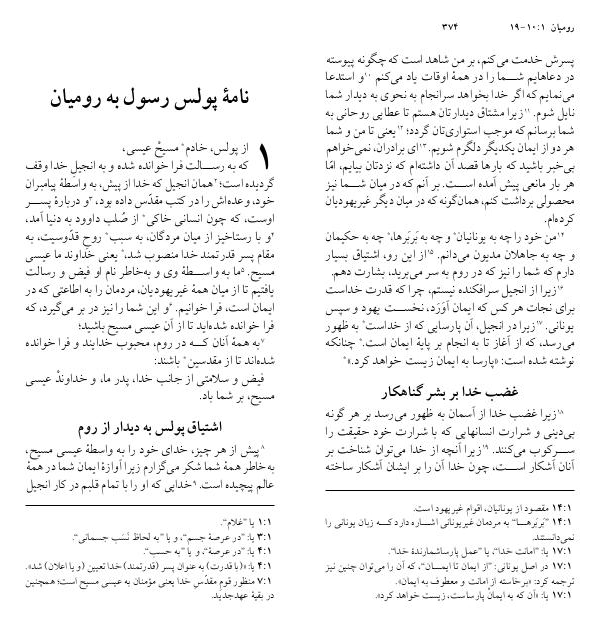 نامهٔ پولس رسول به رومیان
۱ از پولس، خادم* مسیحْ عیسی،
که به رسالت فرا خوانده شده و به انجیلِ خدا وقف
گردیده است؛ ۲همان انجیل که خدا از پیش، به واسطهٔ پیامبران
خود، وعده‌اش را در کتب مقدّس داده بود، ۳و دربارهٔ پسر
اوست، که چون انسانی خاکی* از صُلب داوود به دنیا آمد،
۴و با رستاخیز از میان مردگان، به سبب* روحِ قدّوسیت، به
مقام پسر قدرتمند خدا منصوب شد،* یعنی خداوند ما عیسی
مسیح. ۵ما به واسطهٔ وی و به‌خاطر نام او فیض و رسالت
یافتیم تا از میان همهٔ غیریهودیان، مردمان را به اطاعتی که در
ایمان است، فرا خوانیم. ۶و این شما را نیز در بر می‌گیرد، که
فرا خوانده شده‌اید تا از آن عیسی مسیح باشید؛
۷به همهٔ آنان که در روم، محبوب خدایند و فرا خوانده
شده‌اند تا از مقدسین* باشند:
فیض و سلامتی از جانب خدا، پدر ما، و خداوندْ عیسی
مسیح، بر شما باد.
اشتیاق پولس به دیدار از روم
۸پیش از هر چیز، خدای خود را به واسطهٔ عیسی مسیح،
به‌خاطر همهٔ شما شکر می‌گزارم زیرا آوازهٔ ایمان شما در همهٔ
عالم پیچیده است. ۹خدایی که او را با تمام قلبم در کار انجیل
۱:‏۱ یا "غلام".
۳:‏۱ یا: "در عرصهٔ جسم"، و یا "به لحاظ نَسَب جسمانی".
۴:‏۱ یا: "در عرصهٔ"، و یا "به حسب".
۴:‏۱ یا: «(با قدرت) به عنوان پسر (قدرتمند) خدا تعیین (و یا اعلان) شد».
۷:‏۱ منظور قوم مقدّسِ خدا یعنی مؤمنان به عیسی مسیح است؛ همچنین
در بقیهٔ عهدجدید.
رومیان ۱:‏۱۰-۱۹
۳۷۴
پسرش خدمت می‌کنم، بر من شاهد است که چگونه پیوسته
در دعاهایم شما را در همهٔ اوقات یاد می‌کنم ۱۰و استدعا
می‌نمایم که اگر خدا بخواهد سرانجام به نحوی به دیدار شما
نایل شوم. ۱۱زیرا مشتاق دیدارتان هستم تا عطایی روحانی به
شما برسانم که موجب استواری‌تان گردد؛ ۱۲یعنی تا من و شما
هر دو از ایمان یکدیگر دلگرم شویم. ۱۳ای برادران، نمی‌خواهم
بی‌خبر باشید که بارها قصد آن داشته‌ام که نزدتان بیایم، امّا
هر بار مانعی پیش آمده است. بر آنم که در میان شما نیز
محصولی برداشت کنم، همان‌گونه که در میان دیگر غیریهودیان
کرده‌ام.
۱۴من خود را چه به یونانیان* و چه به بَربَرها،* چه به حکیمان
و چه به جاهلان مدیون می‌دانم. ۱۵از این رو، اشتیاق بسیار
دارم که شما را نیز که در روم به سر می‌برید، بشارت دهم.
۱۶زیرا از انجیل سرافکنده نیستم، چرا که قدرت خداست
برای نجات هر کس که ایمان آوَرَد، نخست یهود و سپس
یونانی. ۱۷زیرا در انجیل، آن پارسایی که از خداست* به ظهور
می‌رسد، که از آغاز تا به انجام بر پایهٔ ایمان است.* چنانکه
نوشته شده است: «پارسا به ایمان زیست خواهد کرد.»*
غضب خدا بر بشر گناهکار
۱۸زیرا غضب خدا از آسمان به ظهور می‌رسد بر هر گونه
بی‌دینی و شرارت انسانهایی که با شرارت خود حقیقت را
سرکوب می‌کنند. ۱۹زیرا آنچه از خدا می‌توان شناخت بر
آنان آشکار است، چون خدا آن را بر ایشان آشکار ساخته
۱۴:‏۱ مقصود از یونانیان، اقوام غیریهود است.
۱۴:‏۱ "بَربَرها" به مردمان غیریونانی اشاره دارد که زبان یونانی را
نمی‌دانستند.
۱۷:‏۱ یا: "امانت خدا"، یا "عمل پارساشمارندهٔ خدا".
۱۷:‏۱ در اصل یونانی: "از ایمان تا ایمان"، که آن را می‌توان چنین نیز
ترجمه کرد: "برخاسته از امانت و معطوف به ایمان".
۱۷:‏۱ یا: «آن که به ایمانْ پارساست، زیست خواهد کرد».